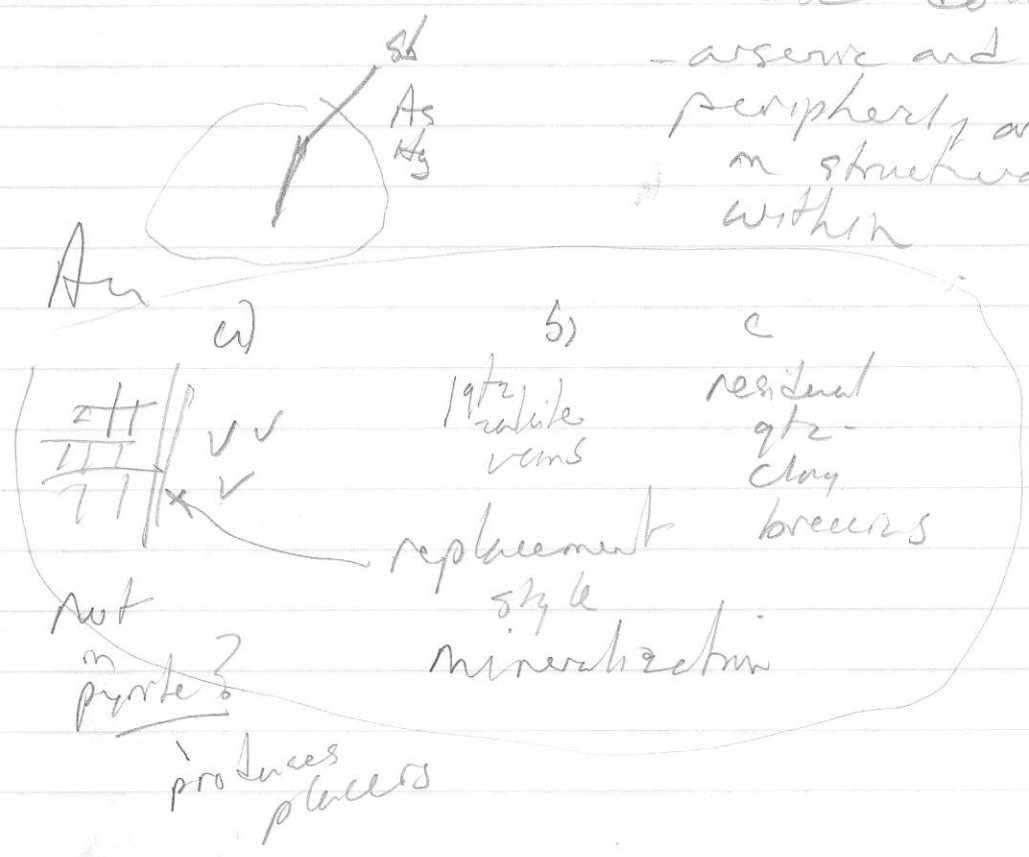 Sb
As
Hg
- arsenic and
periphery, a
in structura
within
Au
a)
b)
c
qtz
veins
residual
qtz-
clay
breccias
replacement
style
mineralization
not
in
pyrite?
produces
placers